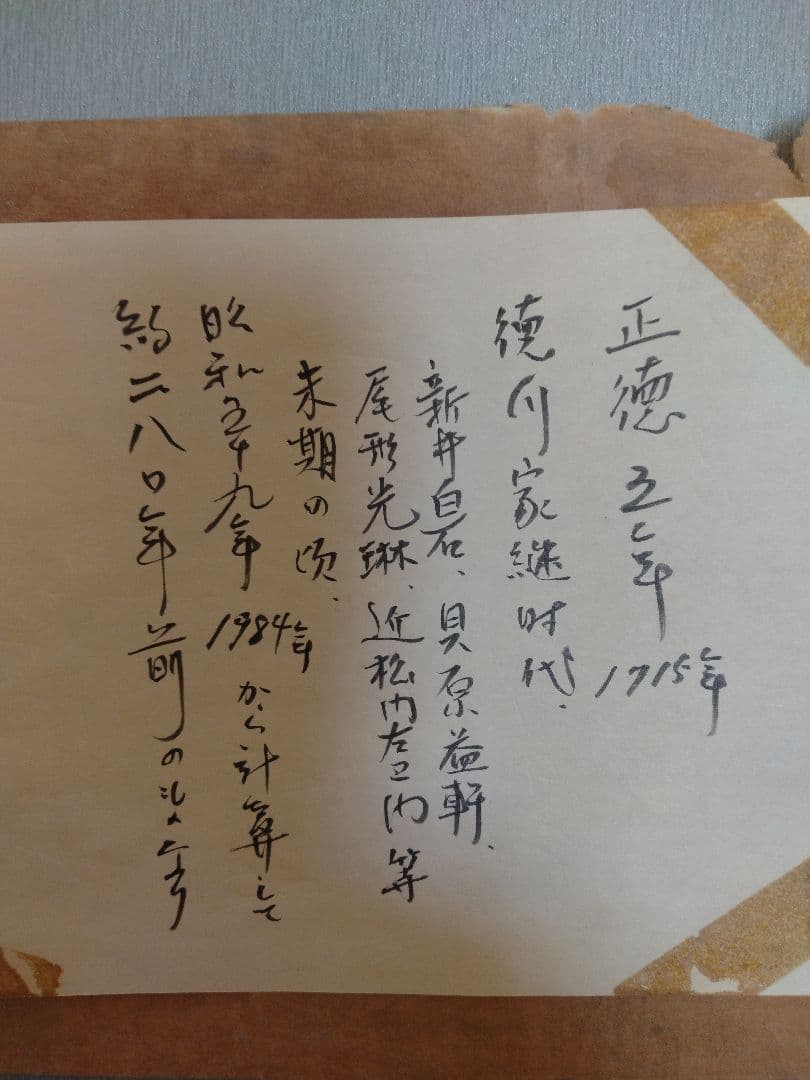 正徳五年 1715年
徳川家継時代.
新井白石、貝原益軒、
尾形光琳、近松门左ヱ门等
末期の頃.
昭和五十九年 1984年から計算して
約二八〇年前の